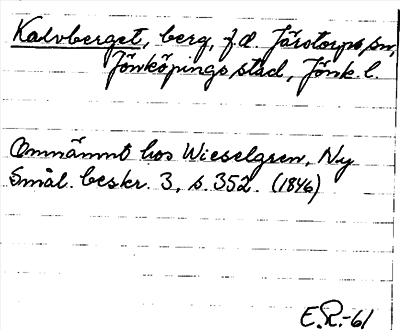 Kalvberget, berg, f.d. Järstorps sn,
Jönköpings stad, Jönk. l.
Omnämnt hos Wieselgren, Ny
Smål. beskr. 3, s. 352. (1846)
E.R.-61